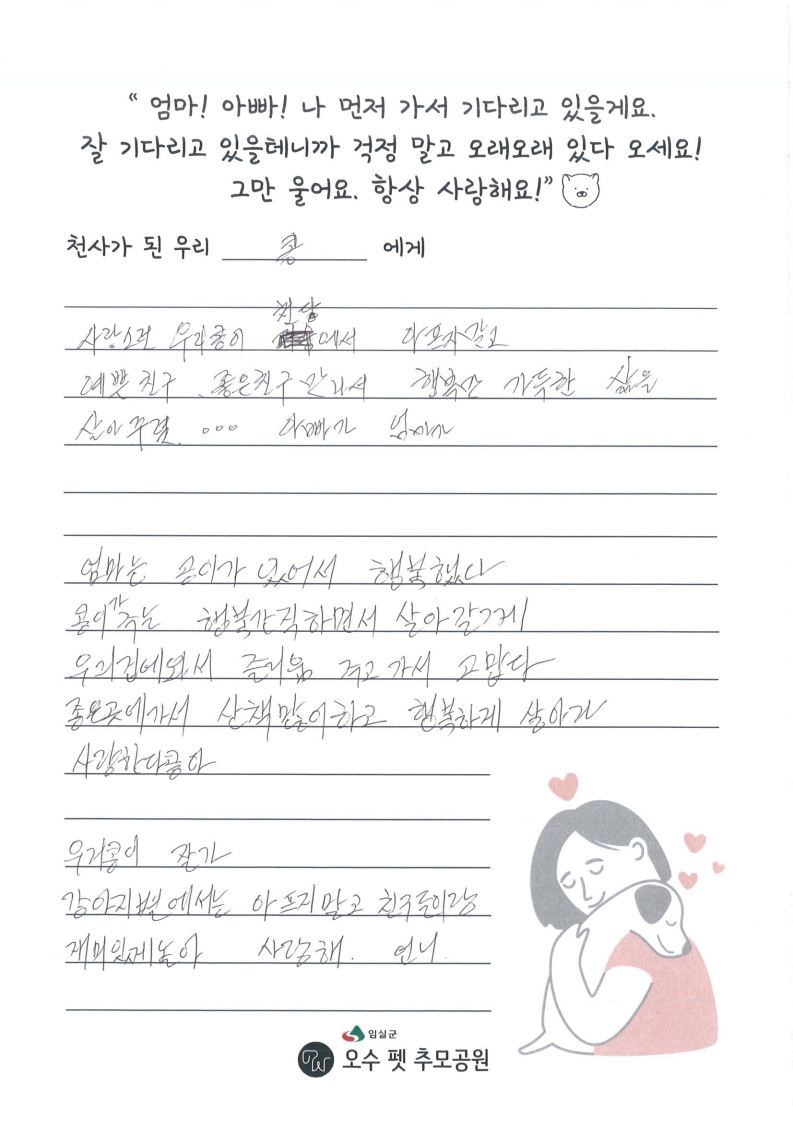 “ 엄마! 아빠! 나 먼저 가서 기다리고 있을게요.
잘 기다리고 있을테니까 걱정 말고 오래오래 있다 오세요!
그만 울어요. 항상 사랑해요!”
천사가 된 우리 콩 에게
천상
우리콩이 에서
예쁜 친구 . 좋은친구 만나서 행복만 가득한 삶을
살아 ... 아빠가 엄마가
엄마는 콩이가 있어서 행복했다
콩이가 주는 행복간직하면서 살아갈게
우리집에와서 즐거움 주고 가서 고맙다
좋은곳에가서 산책많이하고 행복하게 살아라
사랑한다콩아
우리콩이 잘가
강아지별에서는 아프지말고 친구들이랑
재미있게놀아 사랑해. 언니
임실군
오수 펫 추모공원